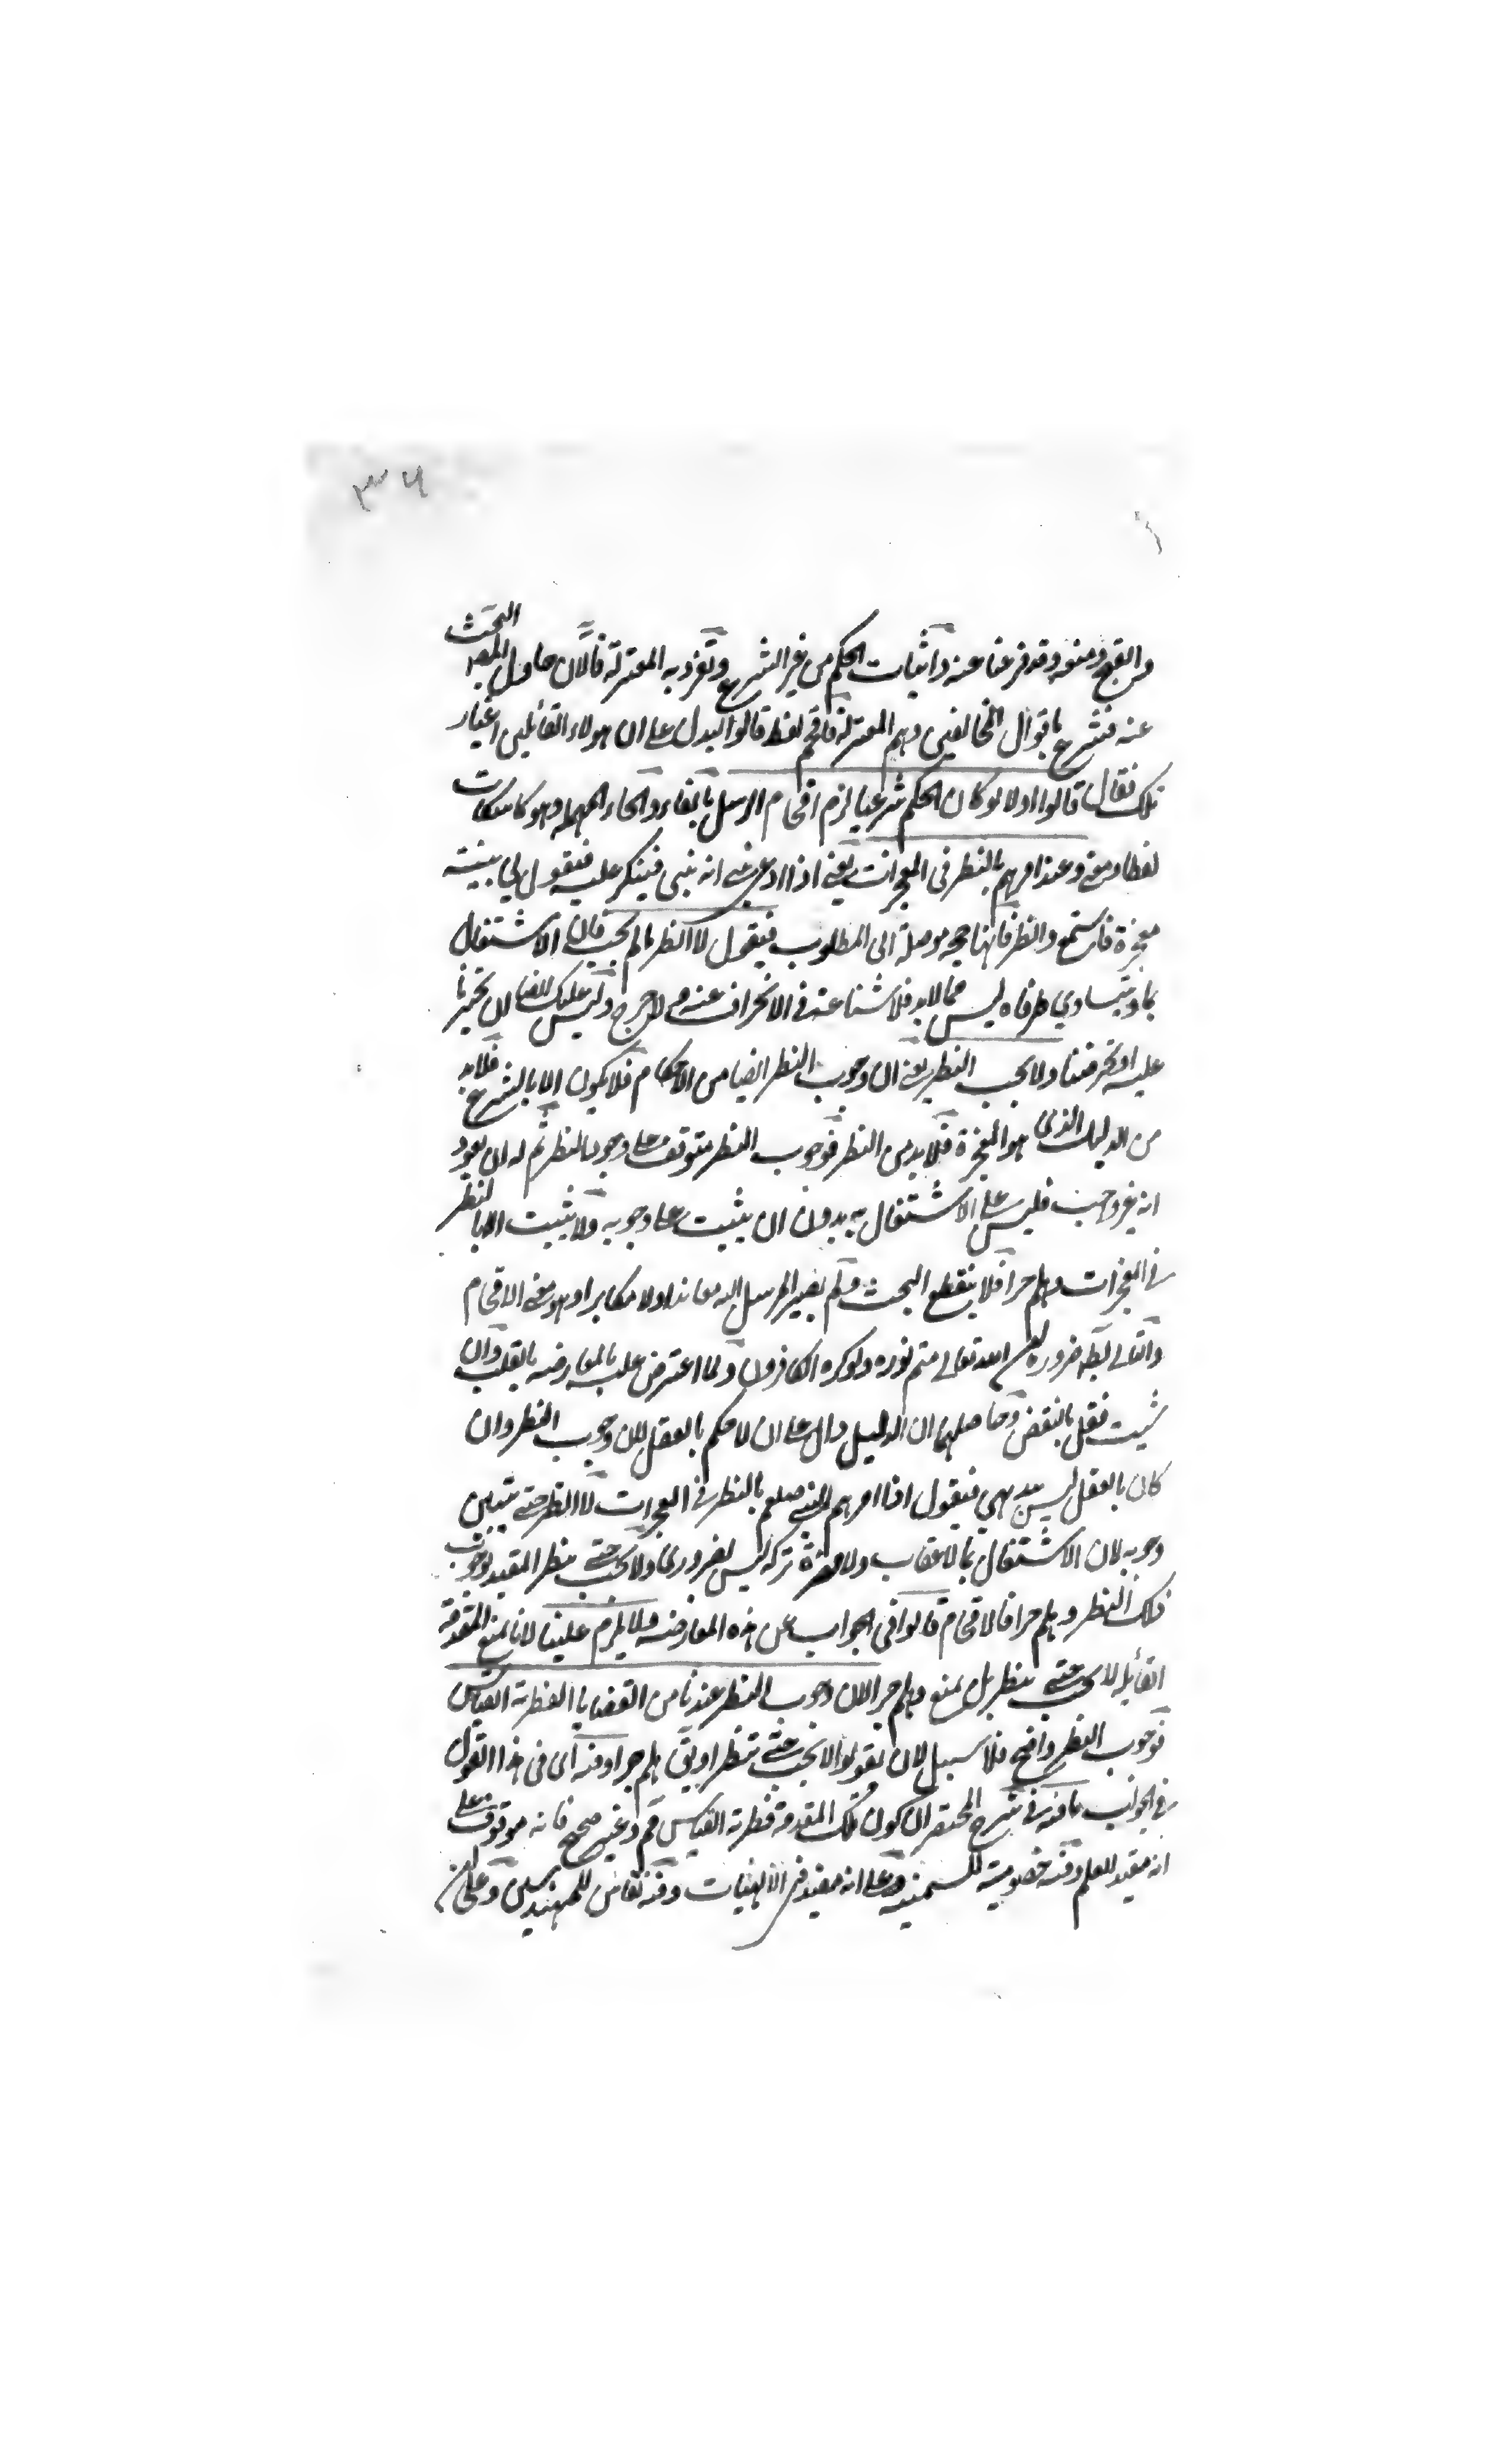 ٣٤
والقبح ومنعه وقد فرغنا عنه واثبات الحكم من غير الشرع وتفرد به المعتزلة فالان حاول المصـ البحث
عنه فشرع باقوال المخالفين وهم المعتزلة فاقحم لفظ قالوا ليدل على ان هولاء القائلين اغيار
تلك فقال قالوا اولا لو كان الحكم شرعيا لزم افحام الرسل بالفاء والحاء المهملة وهو كاسكات
لفظا ومعنى وعند امرهم بالنظر في المعجزات يعني اذا ادعى نبي انه نبي فينكر عليه فيقول لي بينة
معجزة فاستمع وانظر فانها حجة موصلة الى المطلوب فيقول لا انظر ما لم يجب فان الاشتغال
بما يتساوي طرفاه ليس مما لا بد فلا شناعة في الانحراف عنه ولا حرج وليس عليك ايضا ان تجبرنا
عليه او تحرضنا ولا يجب النظر يعني ان وجوب النظر ايضا من الاحكام فلا يكون الا بالشرع فلا بد
من الدليل الذي هو المعجزة فلا بد من النظر فوجوب النظر متوقف على وجوب النظر ثم له ان يعود
انه غير واجب فليس على الاشتغال به بدون ان يثبت على وجوبه ولا يثبت الا بالنظر
في المعجزات وهلم جرا فلا ينقطع البحث ولم يصير المرسل اليه معاندا ولا مكابرا وهو معنى الافحام
والتالي باطل ضرورة ان الله تعالى متم نوره ولو كره الكافرون ولما اعترض عليه بالمعارضة بالقلب وان
شئت فقل بالنقض وحاصلهما ان الدليل دال على ان لا حكم بالعقل لان وجوب النظر وان
كان بالعقل ليس ببديهي فيقول اذا امرهم النبي صلعم بالنظر في المعجزات لا انظر حتى يتبين
وجوبه لان الاشتغال بما لا عقاب ولا مضرة تركه ليس بضروري ولا يجب حتى ينظر المقيد لوجوب
ذلك النظر وهلم جرا فالافحام قالوا في الجواب عن هذه المعارضة ولا يلزم علينا لانا نمنع المقدمة
القائلة لا يجب حتى ينظر بل نمنع وهلم جرا لان وجوب النظر عندنا من القضايا الفطرية القياس
فوجوب النظر واضح فلا سبيل لان يقولوا لا يجب حتى ننظر او يق هلم جرا وفيه اى فى هذا القول
في الجواب ما فيه في شرح المختصر ان كون تلك المقدمة فطرية القياس مم وغير صحيح فانه موقوف على
انه مفيد للعلم وفيه خصومة للسمنية وعلى انه مفيد في الالهيات وفيه نقاش للمهندسين وعلى ان